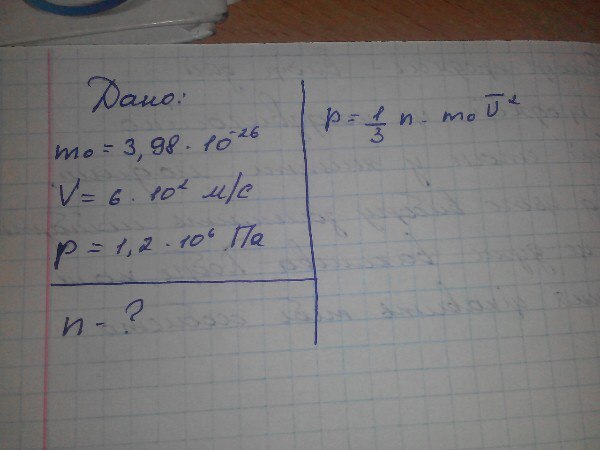 Дано:
m₀ = 3,98 · 10⁻²⁶
V = 6 · 10² м/с
p = 1,2 · 10⁶ Па
n - ?
p = 1/3 n · m₀ V̅²